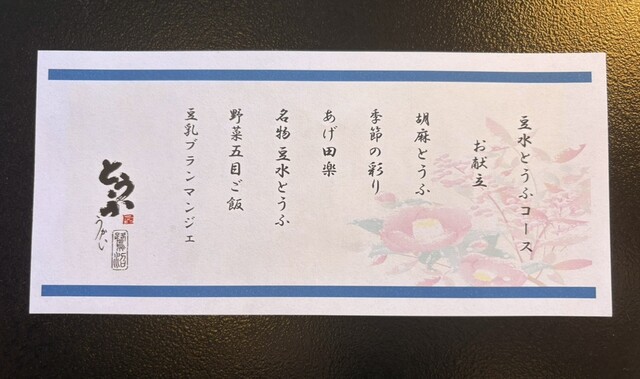 豆水とうふコース
お献立
胡麻とうふ
季節の彩り
あげ田楽
名物 豆水とうふ
野菜五目ご飯
豆乳ブランマンジェ
とうふ
うかい
鷺沼